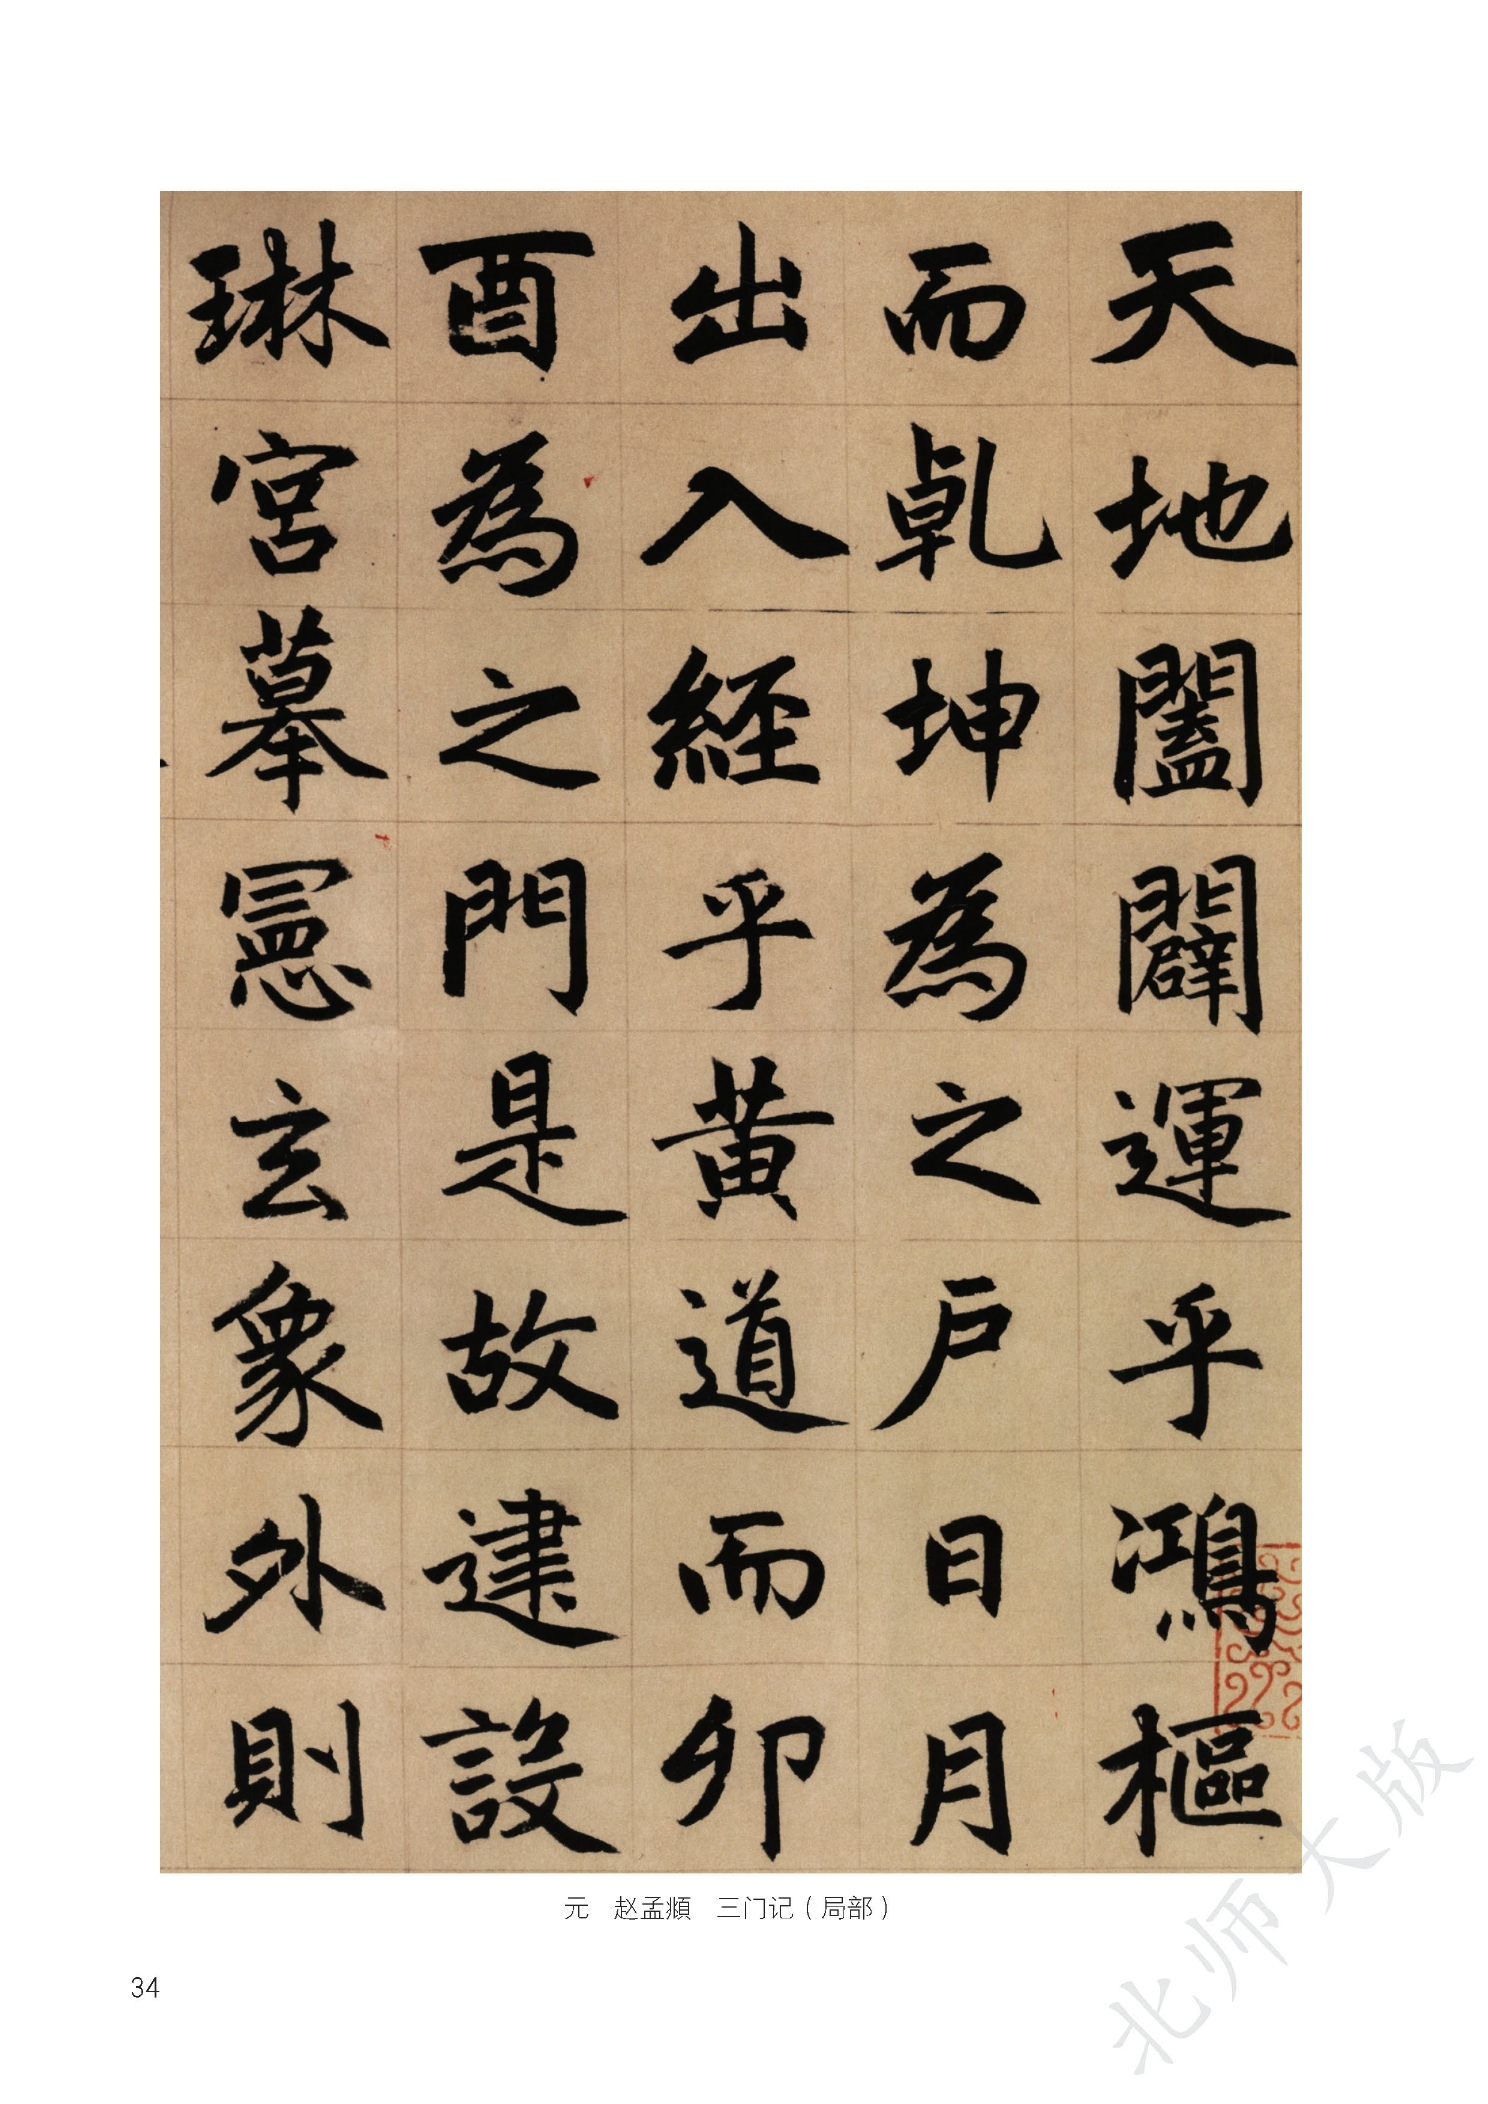 天地闔闢運乎鴻樞
而乹坤為之戶日月
出入經乎黃道而卯
酉為之門是故建設
琳宮摹憲玄象外則
元 赵孟頫 三门记（局部）
34
北师大版